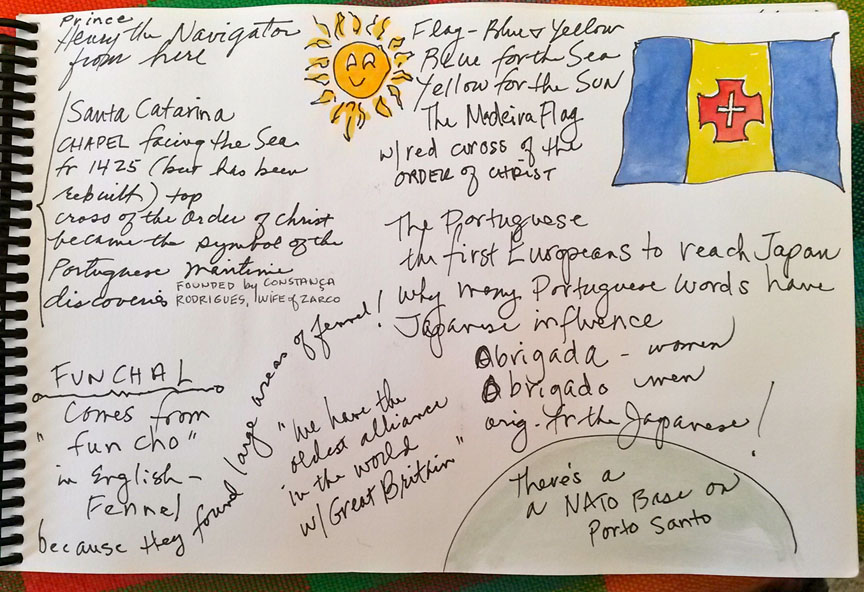 Prince
Henry the Navigator
from here
Santa Catarina
CHAPEL facing the Sea
fr 1425 (but has been
rebuilt) top
cross of the order of Christ
became the symbol of the
Portuguese maritime
discoveries
FOUNDED by CONSTANÇA
RODRIGUES, WIFE of ZARCO
FUNCHAL
Comes from
"fun cho"
in English -
Fennel
because they found large areas of fennel!
"we have the
oldest alliance
in the world
w/ Great Britain"
Flag - Blue & Yellow
Blue for the Sea
Yellow for the SUN
The Madeira Flag
w/ red cross of the
ORDER of CHRIST
The Portuguese
the first Europeans to reach Japan
Why many Portuguese words have
Japanese influence
Obrigada - women
Obrigado men
orig. fr the Japanese!
There's a
a NATO Base on
Porto Santo